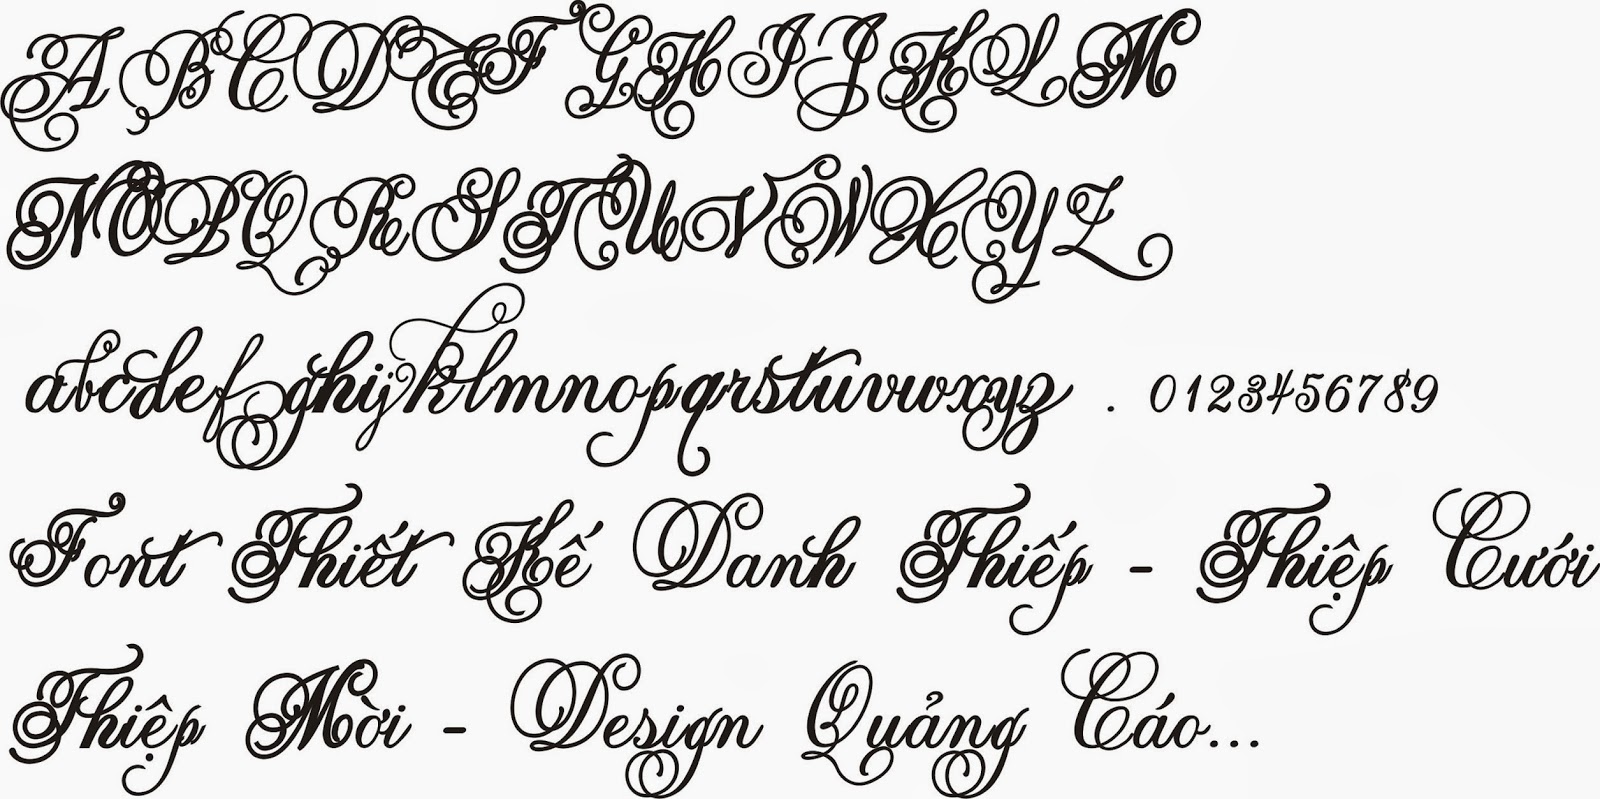 A B C D E F G H I J K L M
N O P Q R S T U V W X Y Z
abcdefghijklmnopqrstuvwxyz . 0123456789
Font Thiết Kế Danh Thiếp - Thiệp Cưới
Thiệp Mời - Design Quảng Cáo...